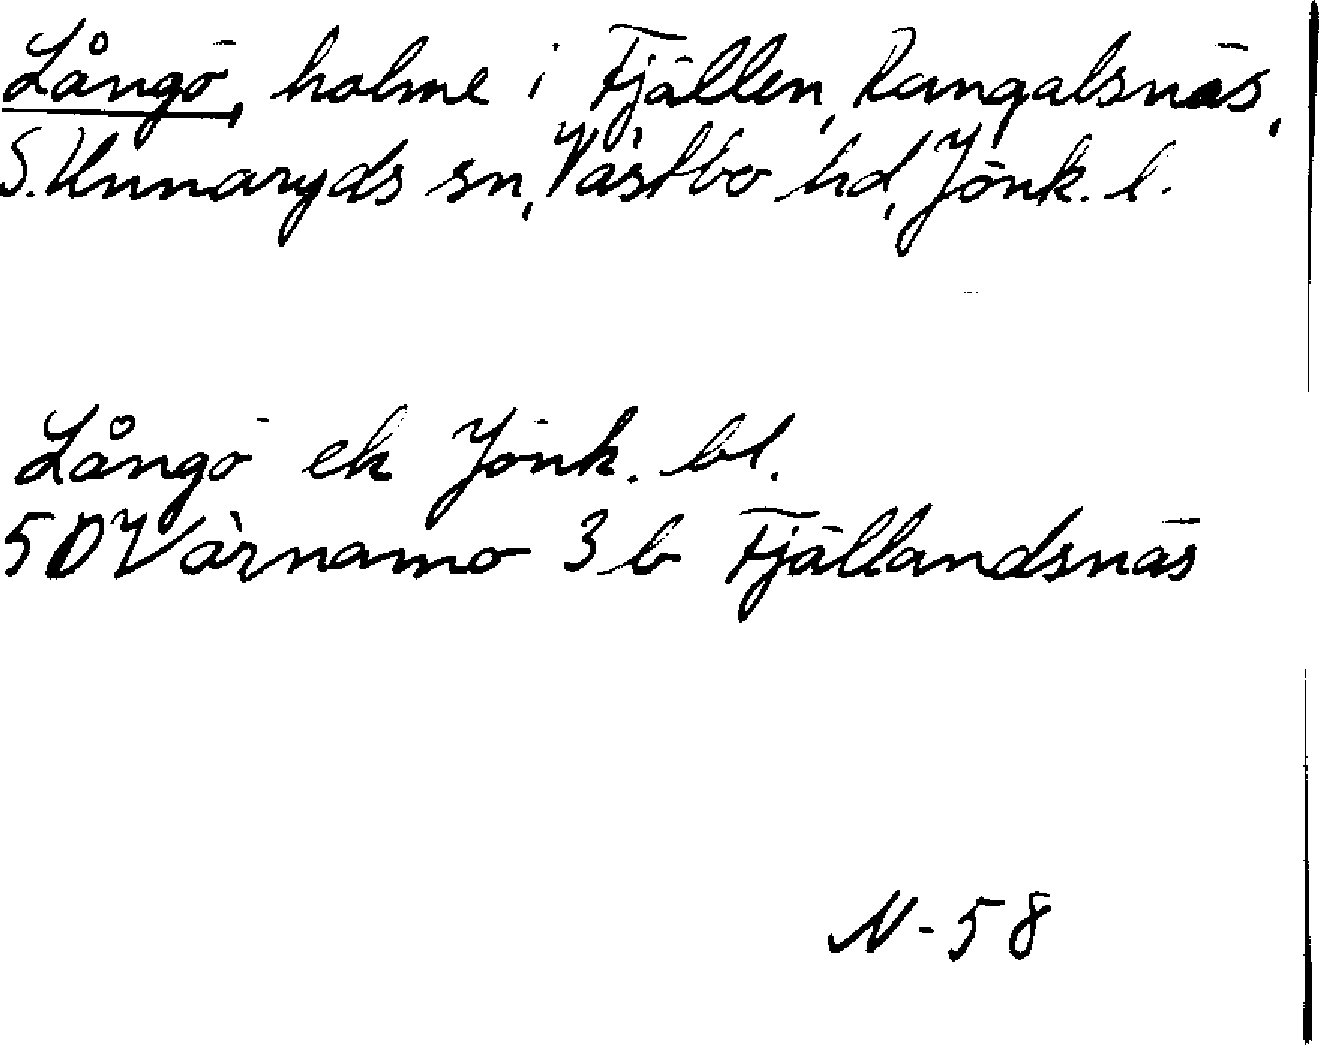 Långö, holme i Fjällen, Rangalsnäs,
S. Unnaryds sn, Västbo hd, Jönk. l.
Långö ek Jönk. bl.
5D Värnamo 3b Fjällandsnäs
N-58